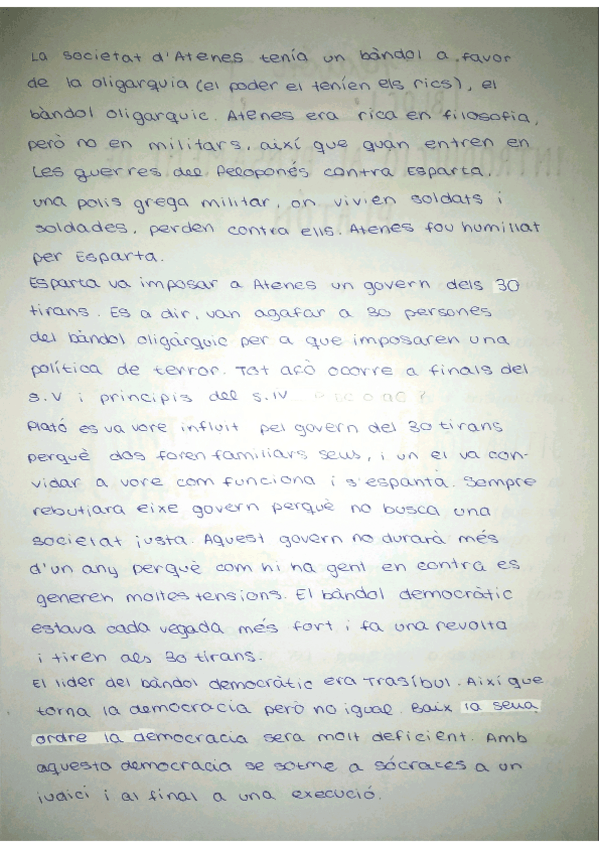 La societat d'Atenes tenía un bàndol a favor
de la oligarquia (el poder el teníen els rics), el
bàndol oligarquic. Atenes era rica en filosofia,
però no en militars, així que quan entren en
les guerres del Peloponés contra Esparta,
una polis grega militar, on vivien soldats i
soldades, perden contra ells. Atenes fou humillat
per Esparta.
Esparta va imposar a Atenes un govern dels 30
tirans. Es a dir, van agafar a 30 persones
del bàndol oligàrquic per a que imposaren una
política de terror. Tot açò ocorre a finals del
s.V i principis del s.IV
Plató es va vore influit pel govern del 30 tirans
perquè dos foren familiars seus, i un el va con-
vidar a vore com funciona i s'espantà. Sempre
rebutjara eixe govern perquè no busca una
societat justa. Aquest govern no durarà més
d'un any perquè com hi ha gent en contra es
generen moltes tensions. El bàndol democràtic
estava cada vegada més fort i fa una revolta
i tiren als 30 tirans.
El lider del bàndol democràtic era Trasíbul. Així que
torna la democracia però no igual. Baix la seua
ordre la democracia sera molt deficient. Amb
aquesta democracia se sotme a sócrates a un
judici i al final a una execució.